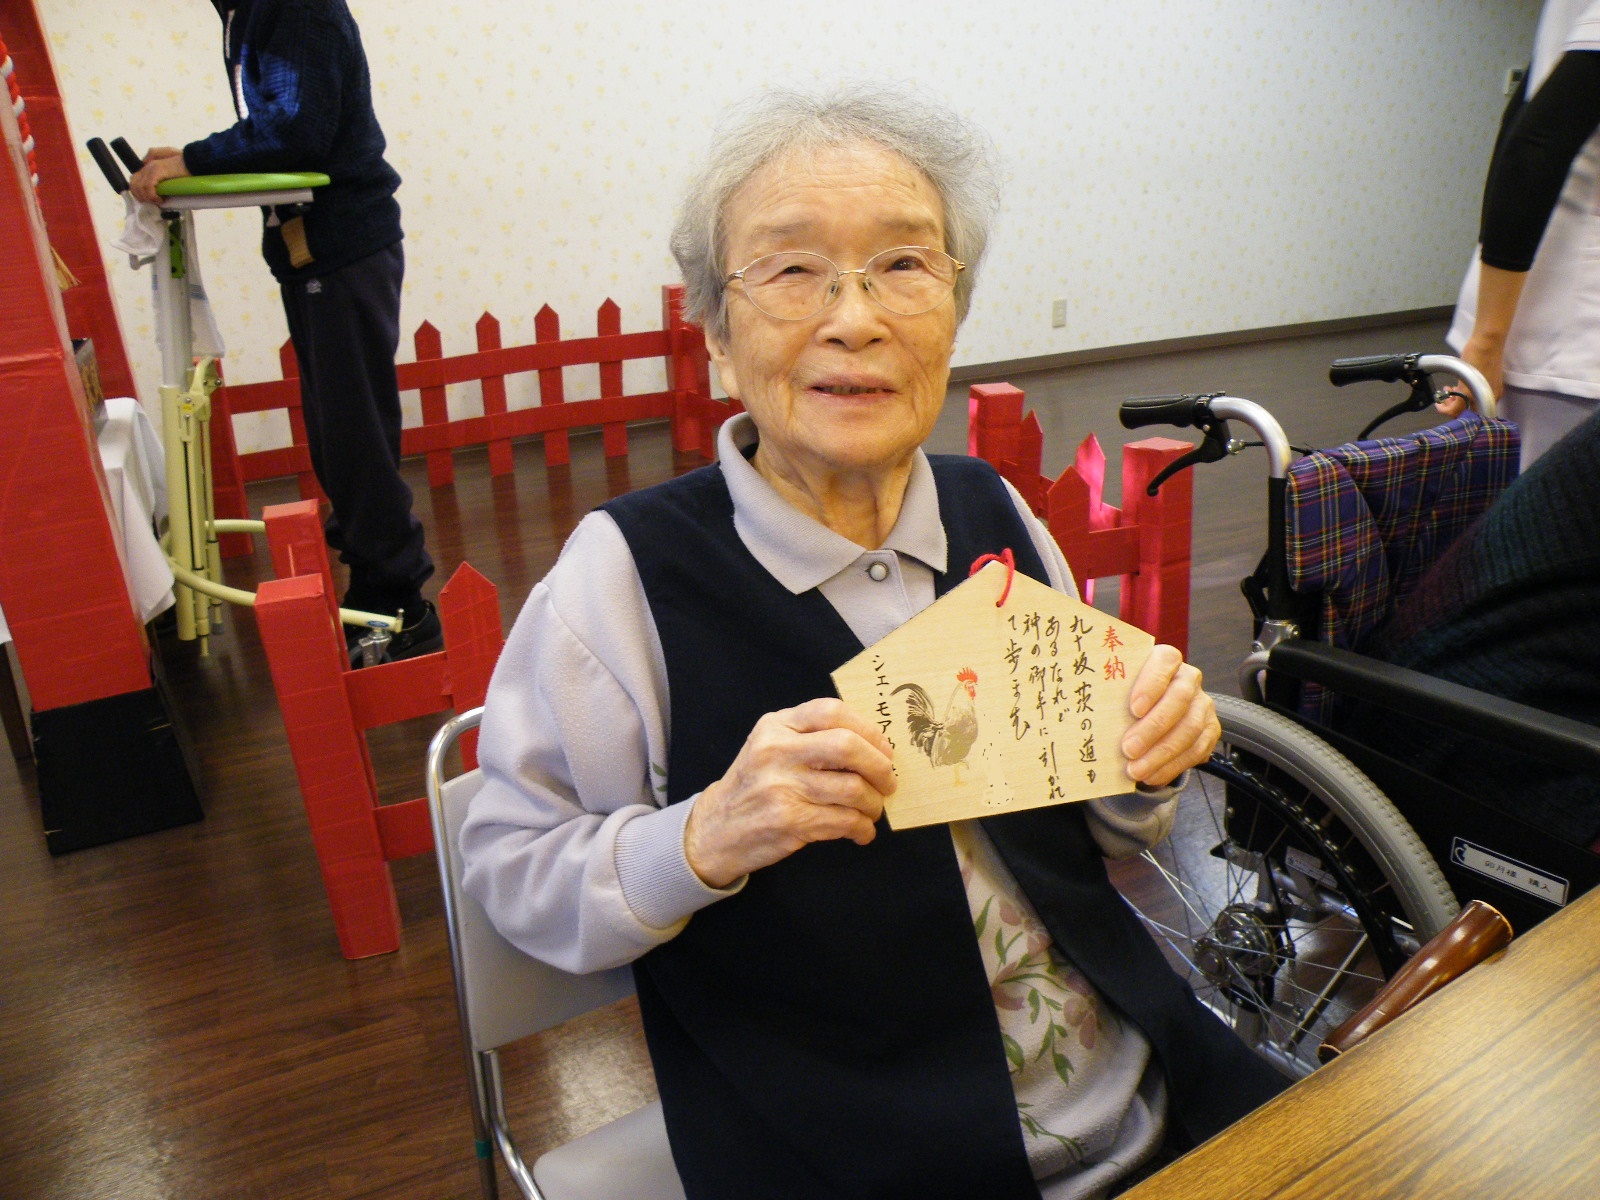 奉納
九十坂茨の道も
あるなれど
神の御手に引かれ
て歩まむ
シェ・モア
卯月様 購入